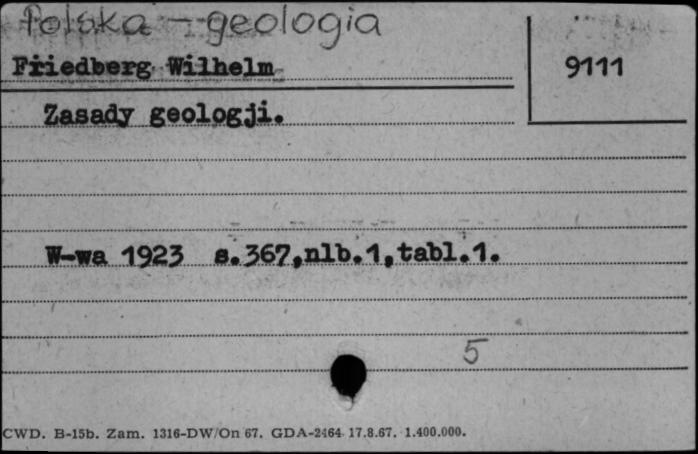 Polska – geologia
Friedberg Wilhelm
9111
Zasady geologji.
W-wa 1923 s.367,nlb.1,tabl.1.
5
CWD. B-15b. Zam. 1316-DW/On 67. GDA-2464 17.8.67. 1.400.000.